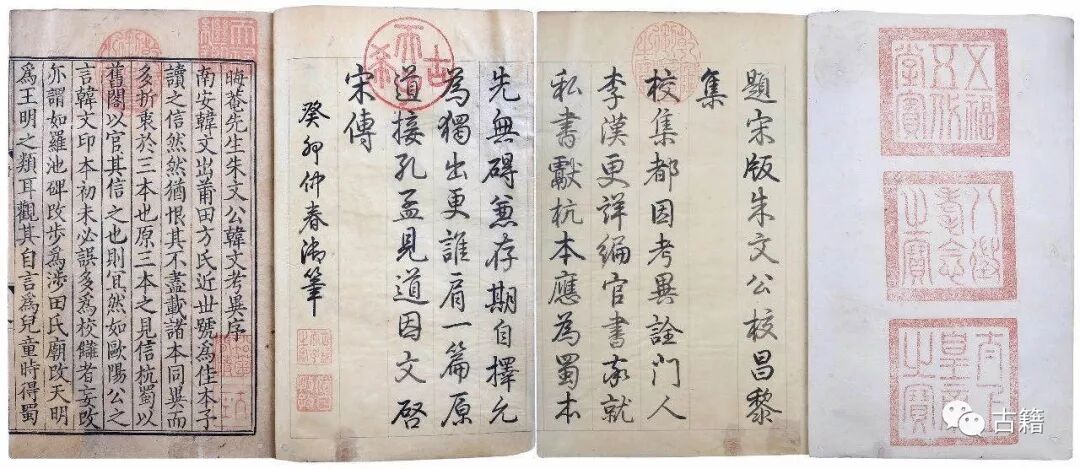 五福
五代
堂寶
八徵
耄念
之寶
太上
皇帝
之寶
題宋版朱文公校昌黎
集
校集都因考異詮門人
李漢更詳編官書亦就
私書獻杭本應為蜀本
先無碍兼存期自擇允
為獨出更誰肩一篇原
道接孔孟見道因文啓
宋傳
癸卯仲春御筆
古希天子
晦菴先生朱文公韓文考異序
南安韓文出莆田方氏近世號為佳本予
讀之信然然猶恨其不盡載諸本同異而
多折衷於三本也原三本之見信杭蜀以
舊閣以官其信之也則冝然如歐陽公之
言韓文印本初未必誤多為校讎者妄改
亦謂如羅池碑改步為涉田氏廟改天明
為王明之類耳觀其自言為兒童時得蜀
古籍